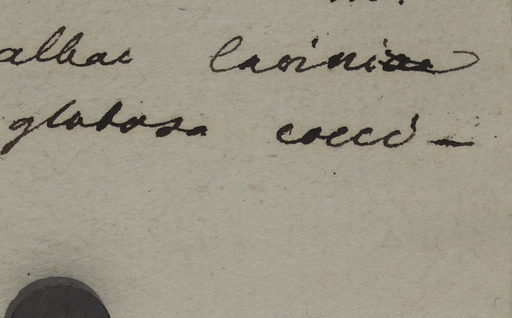 albae laciniae
globosa cocci-